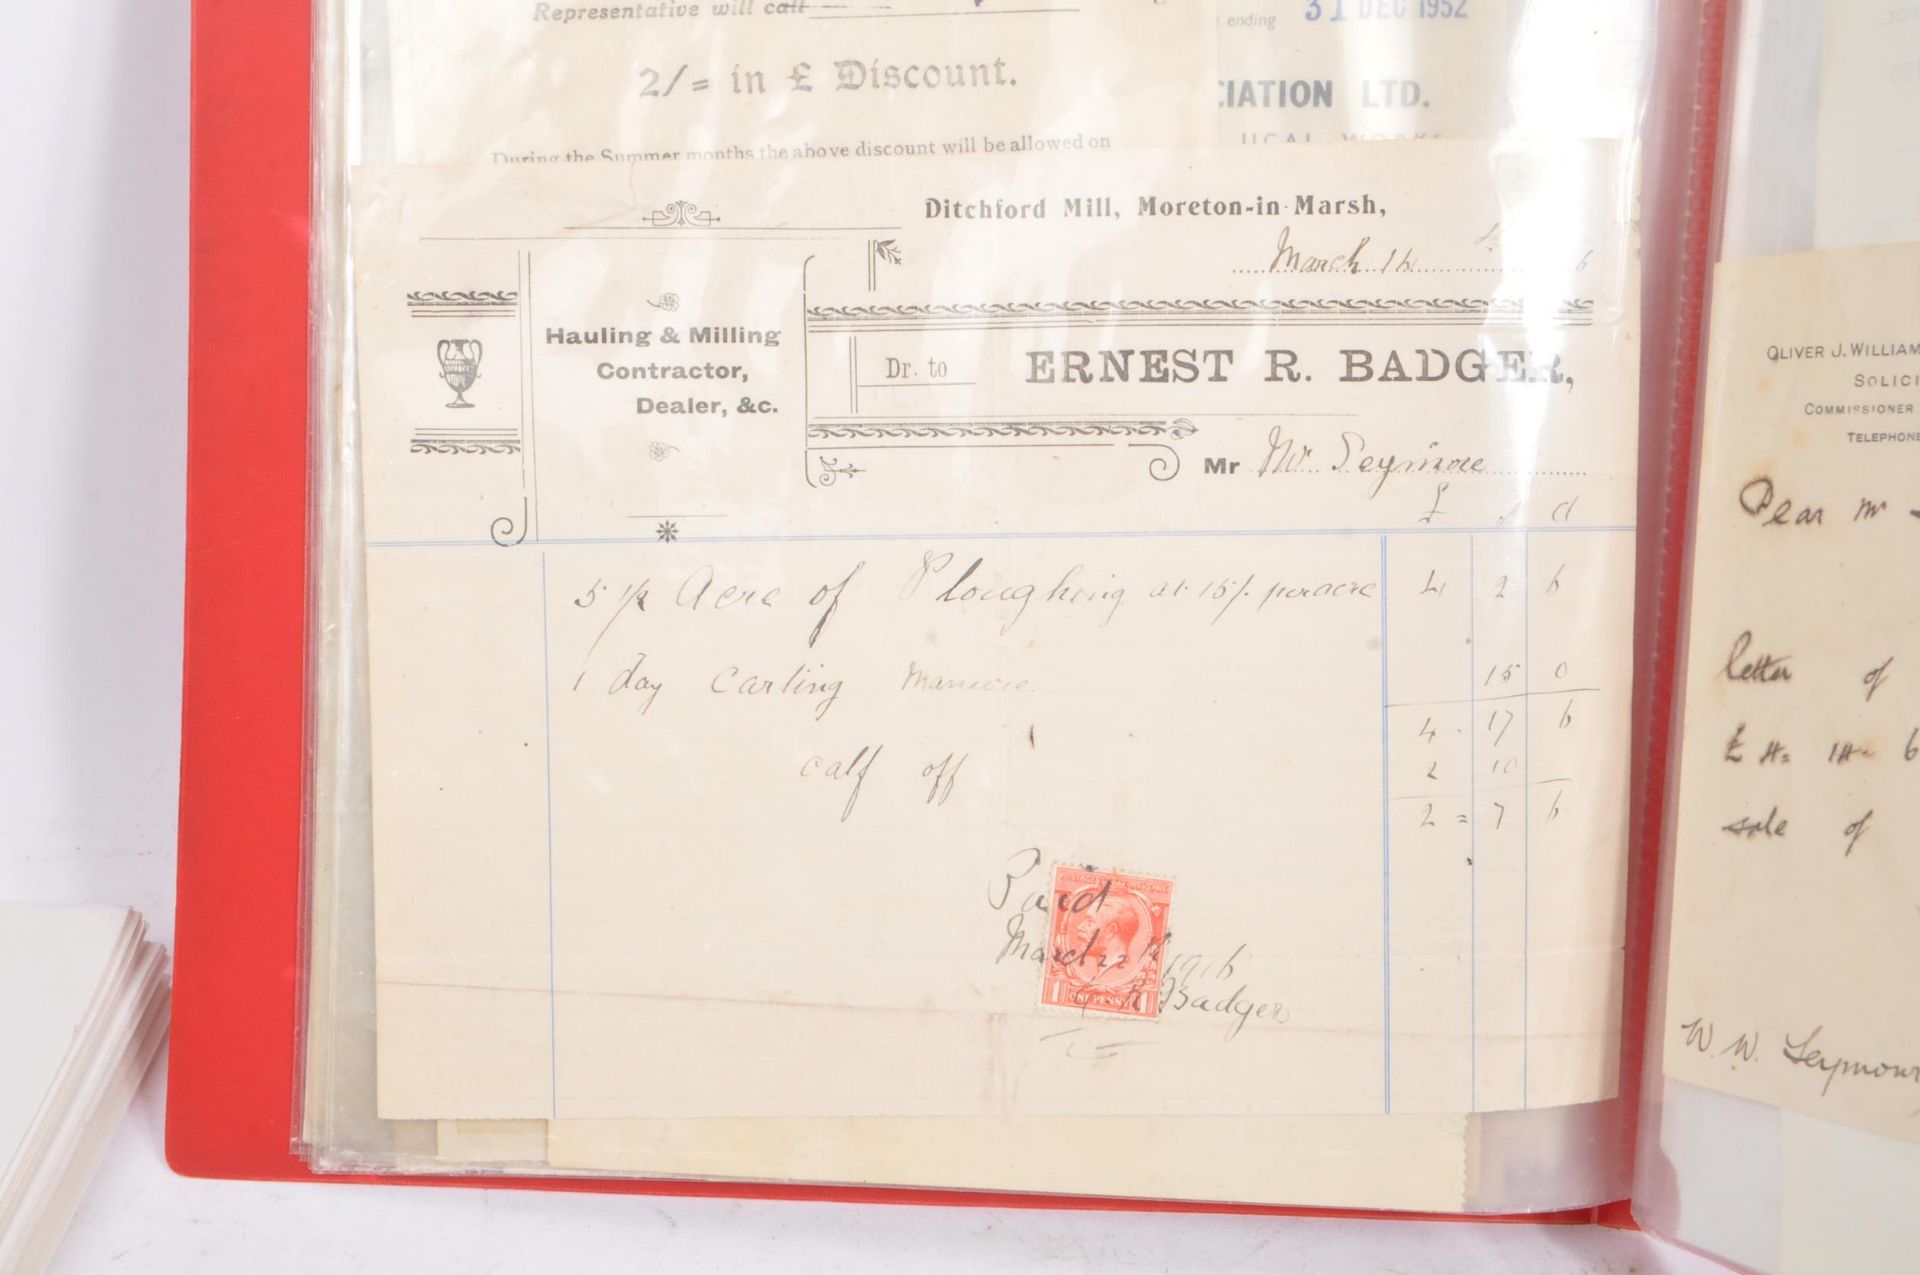 Representative will call
2/= in £ Discount.
During the Summer months the above discount will be allowed on
ending 31 DEC 1952
CIATION LTD.
Ditchford Mill, Moreton-in-Marsh,
March 14 6
Hauling & Milling
Contractor,
Dealer, &c.
Dr. to ERNEST R. BADGER,
Mr Mr Seymore
£ s d
5 1/2 Acre of Ploughing at 15/- per acre 4 2 6
1 day Carting Manure 15 0
4 . 17 6
calf off 2 10
2 = 7 6
Paid
March 22 1916
E R Badger
POSTAGE REVENUE
1 ONE PENNY 1
OLIVER J. WILLIAM
SOLICI
COMMISSIONER
TELEPHONE
Dear Mr
letter of
£ 4= 14- 6
sale of
W. W. Seymour